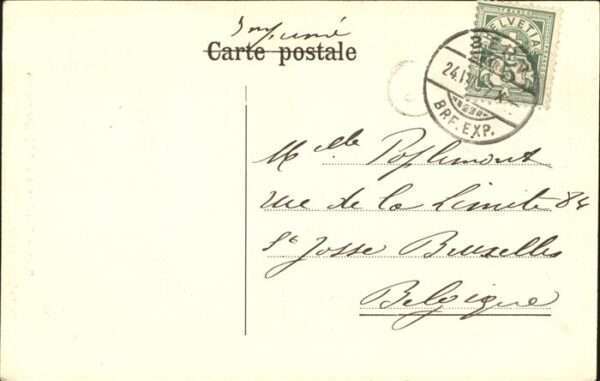 Imprimé
Carte postale
HELVETIA
5
24.IV
X
BRF. EXP.
Mlle Poplimont
rue de la Limite 84
St Josse Bruxelles
Belgique